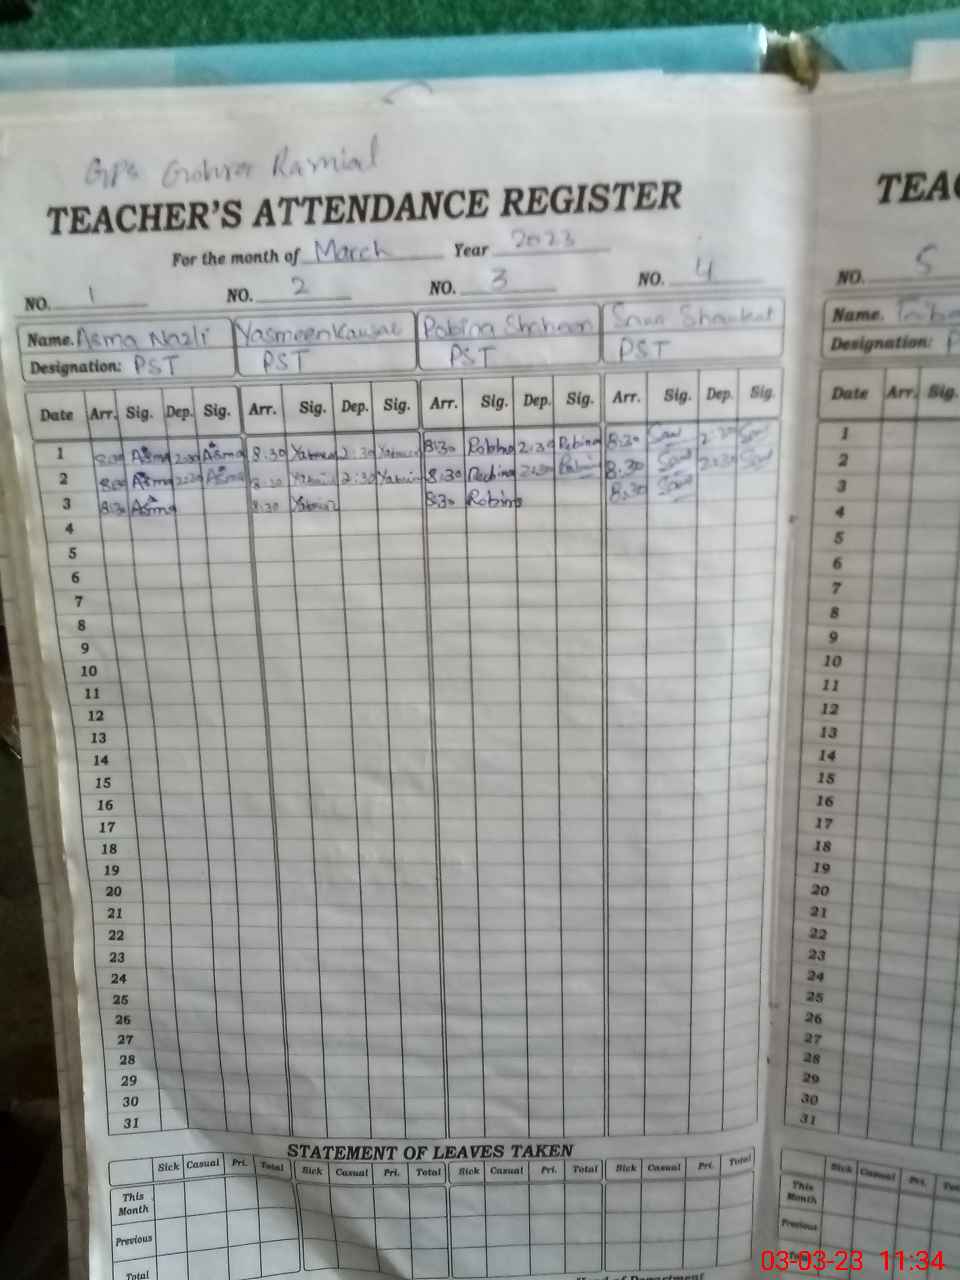 GPS Ramial
TEACHER'S ATTENDANCE REGISTER
TEAC
For the month of March Year 2023
NO. 1 NO. 2 NO. 3 NO. 4
NO. 5
Name. Asma Nazli Yasmeen Kawsar Robina Shaheen Sana Shaukat
Name.
Designation: PST PST PST PST
Designation: P
Date Arr. Sig. Dep. Sig. Arr. Sig. Dep. Sig. Arr. Sig. Dep. Sig. Arr. Sig. Dep. Sig.
Date Arr. Sig.
1 8:00 Asma 2:30 Asma 8:30 2:30 8:30 Robina 2:30 Robina 8:30 2:30
2 8:00 Asma 2:30 Asma 8:30 2:30 8:30 Robina 2:30 8:30 2:30
3 8:30 Asma 8:30 8:30 Robina 8:30
4
5
6
7
8
9
10
11
12
13
14
15
16
17
18
19
20
21
22
23
24
25
26
27
28
29
30
31
1
2
3
4
5
6
7
8
9
10
11
12
13
14
15
16
17
18
19
20
21
22
23
24
25
26
27
28
29
30
31
STATEMENT OF LEAVES TAKEN
Sick Casual Pri. Total Sick Casual Pri. Total Sick Casual Pri. Total Sick Casual Pri. Total
Sick Casual Pri.
This Month
This Month
Previous
Previous
Total
Total
Head of Department
03-03-23 11:34